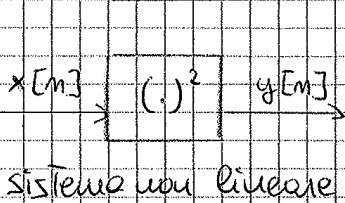 x[n]
(.)²
y[n]
sistema non lineare